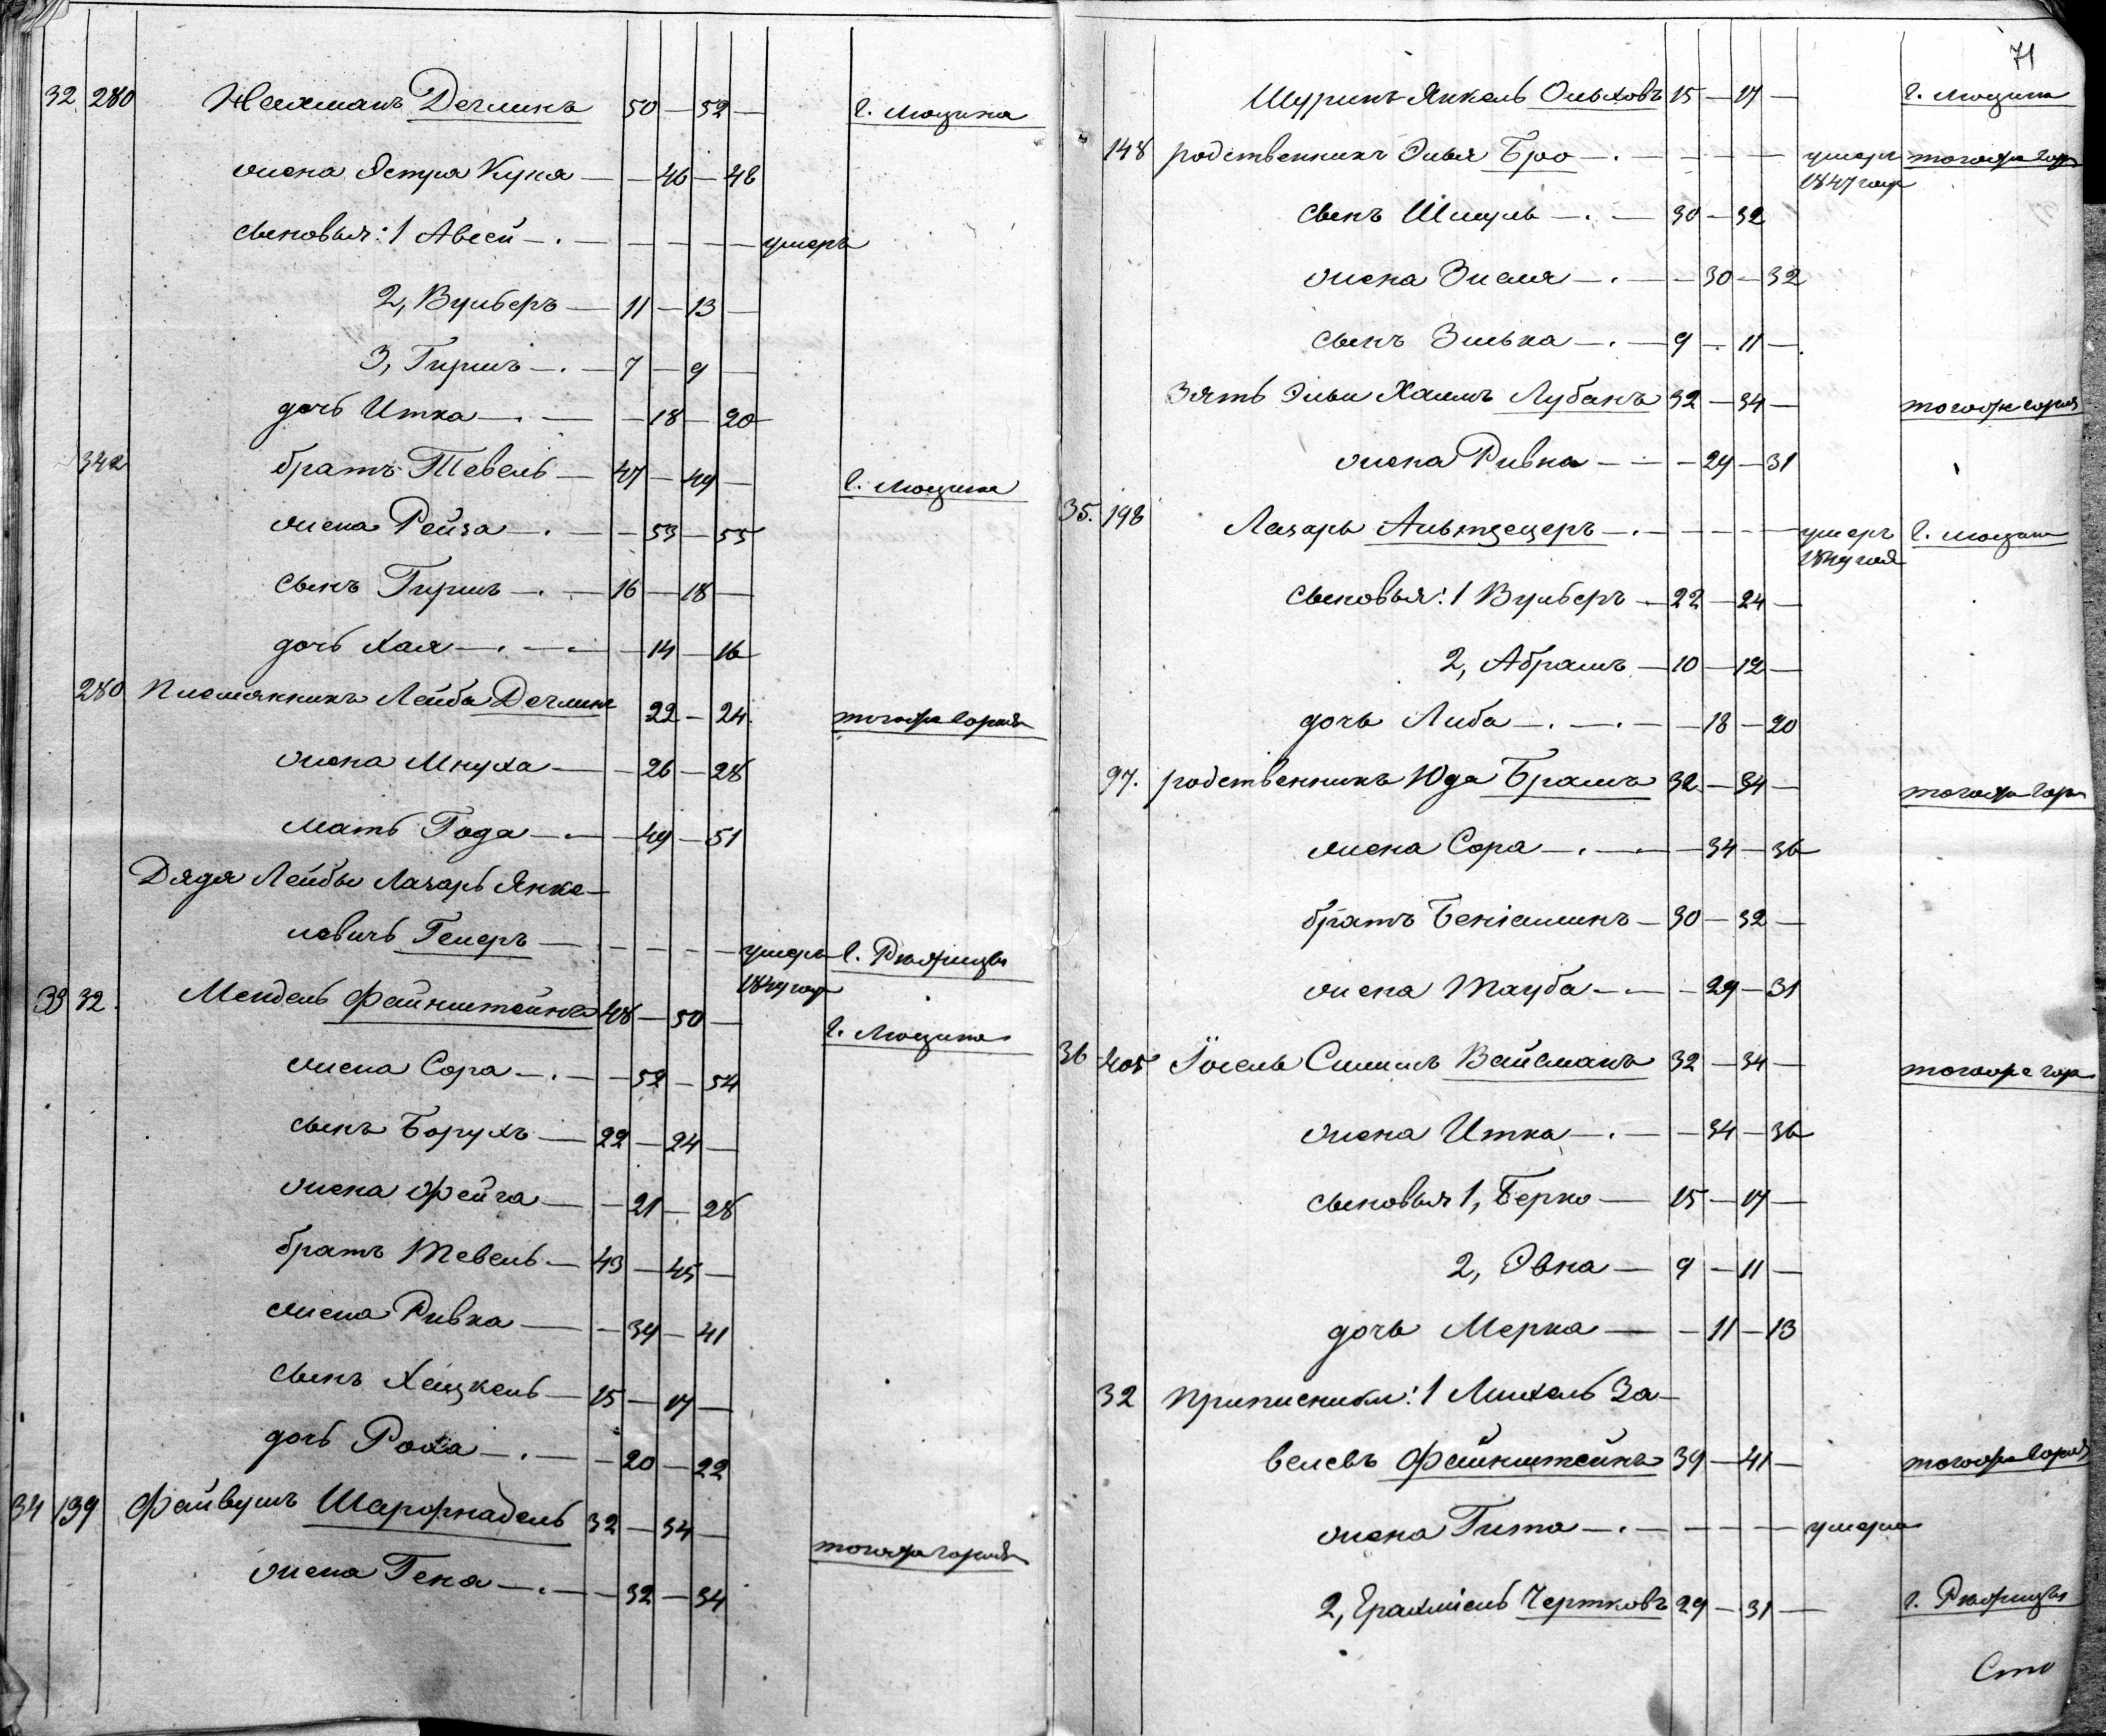 32 280 Нехманъ Дечлинъ 50 — 52 — г. Люцина
жена Эстра Куня — — 46 — 48
сыновья: 1 Авсей — . — — — — умеръ
2, Вульберъ — 11 — 13 —
3, Гиршъ — . — 7 — 9 —
дочь Итка — . — — 18 — 20
342 братъ Тевель — 47 — 49 — г. Люцина
жена Рейза — . — — 53 — 55
сынъ Гиршъ — . — 16 — 18 —
дочь Хая — . — — 14 — 16
280 Племянникъ Лейба Дечлинъ 22 — 24 тогоже города
жена Мнуха — — 26 — 28
мать Года — . — 49 — 51
Дядя Лейбы Лазарь Янке-
левичъ Гелеръ — — — — умеръ г. Рѣжицы
1849 года
33 32. Мендель Файнштейнъ 48 — 50 — г. Люцина
жена Сора — . — — 52 — 54
сынъ Борухъ — 22 — 24 —
жена Фейга — — 21 — 28
братъ Тевель — 43 — 45 —
жена Ривка — — 39 — 41
сынъ Хацкель — 15 — 17 —
дочь Роха — . — — 20 — 22
34 139 Файвушъ Шарфнадель 32 — 34 — тогоже города
жена Гена — . — — 32 — 34
71
Шуринъ Янкель Ольховъ 15 — 17 — г. Люцина
148 родственникъ Элья Бро — . — — — — умеръ тогоже гор
1847 года
сынъ Шмуль — . — 30 — 32
жена Зисля — . — — 30 — 32
сынъ Зелька — . — 9 — 11 —
Зять Эльи Хаимъ Лубанъ 32 — 34 — тогоже города
жена Ривка — — — 29 — 31
35. 198 Лазарь Альтцецеръ — . — — — — умеръ г. Люцина
1849 года
сыновья: 1 Вульберъ — 22 — 24 —
2, Абрамъ — 10 — 12 —
дочь Либа — . — . — — 18 — 20
97. родственникъ Юда Брамъ 32 — 34 — тогоже гор
жена Сора — . — — 34 — 36
братъ Беніаминъ — 30 — 32 —
жена Тауба — — — 29 — 31
36 205 Іосель Симилъ Вайсманъ 32 — 34 — тогоже гор
жена Итка — . — — 34 — 36
сыновья 1, Берко — 15 — 17 —
2, Эвна — 9 — 11 —
дочь Мерка — — 11 — 13
32 Приписники: 1 Михель За-
велевъ Файнштейнъ 39 — 41 — тогоже города
жена Гита — . — — — — умерла
2, Ерахміель Чертковъ 29 — 31 — г. Рѣжицы
Сто